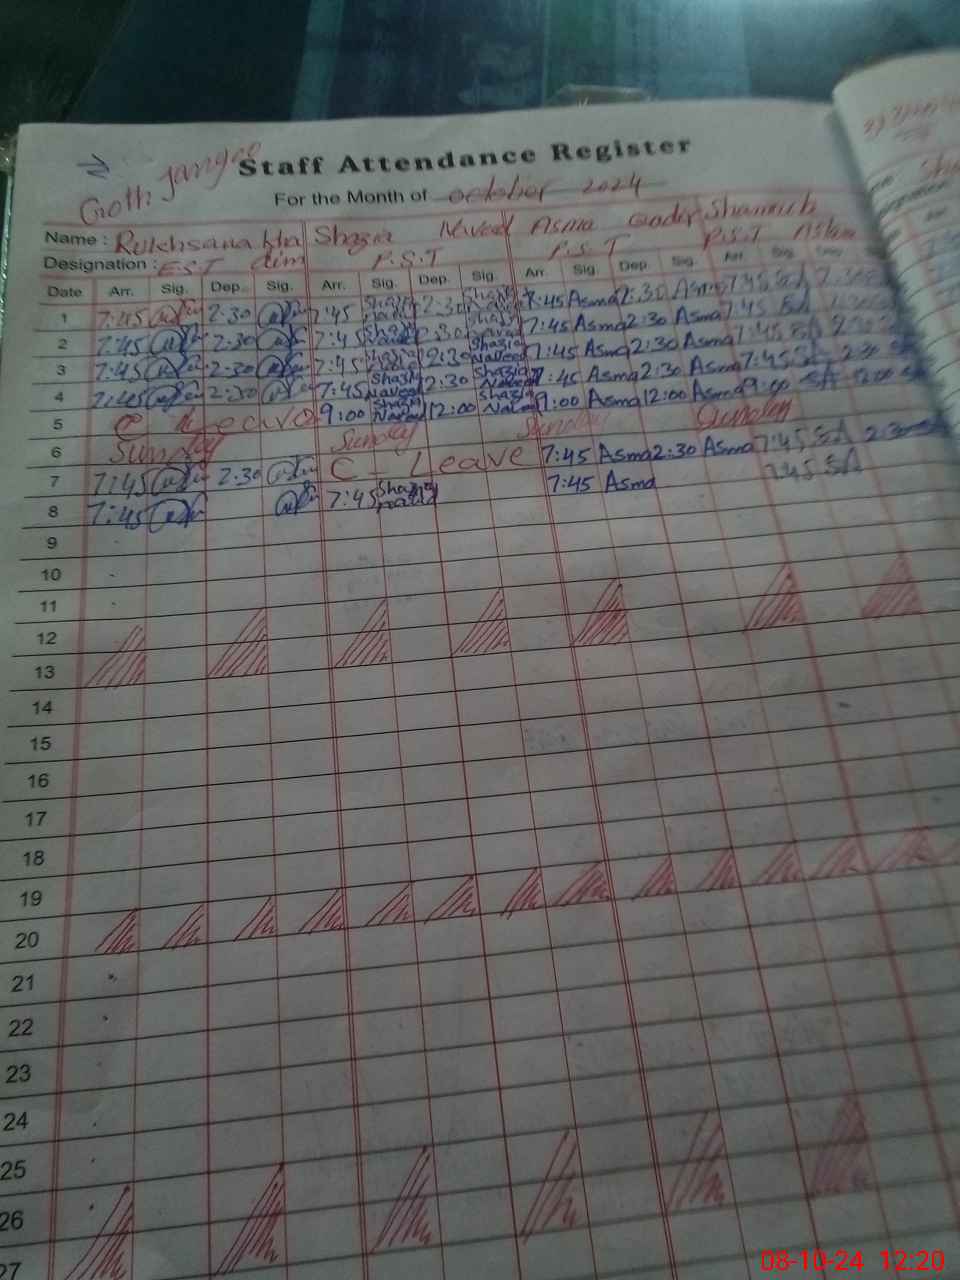 Goth Jangoo Staff Attendance Register
For the Month of October 2024
Name : Rukhsana Shazia Naveed Asma Qadir Shamrich Aslam
Designation : E.S.T P.S.T P.S.T P.S.T
Date Arr. Sig. Dep. Sig. Arr. Sig. Dep. Sig. Arr. Sig. Dep. Sig. Arr. Sig.
1 7:45 2:30 7:45 Shazia 2:30 Shazia 7:45 Asma 2:30 Asma 7:45 SA 2:30
2 7:45 2:30 7:45 Shazia 2:30 Shazia 7:45 Asma 2:30 Asma 7:45 SA 2:30
3 7:45 2:30 7:45 Shazia 2:30 Shazia Naveed 7:45 Asma 2:30 Asma 7:45 SA 2:30
4 7:45 2:30 7:45 Shazia Naveed 2:30 Shazia Naveed 7:45 Asma 2:30 Asma 7:45 SA 2:30
5 C Leave 9:00 Shazia Naveed 12:00 Shazia Naveed 9:00 Asma 12:00 Asma 9:00 SA 12:00 SA
6 Sunday Sunday Sunday Sunday
7 7:45 2:30 C - Leave 7:45 Asma 2:30 Asma 7:45 SA 2:30
8 7:45 7:45 Shazia Naveed 7:45 Asma 7:45 SA
9
10
11
12
13
14
15
16
17
18
19
20
21
22
23
24
25
26
27
08-10-24 12:20